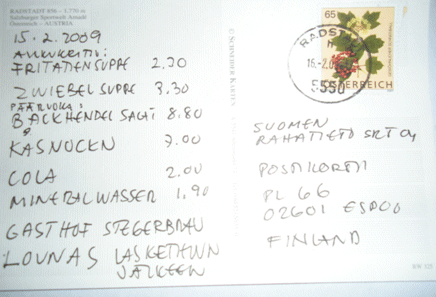 RADSTADT 856 - 1.770 m
Salzburger Sportwelt Amadé
Österreich - AUSTRIA
15.2.2009
ALKURUOKA:
FRITATENSUPPE 2.20
ZWIEBELSUPPE 3.30
PÄÄRUOKA:
BACKHENDEL SALAT 8.80
KASNOCKEN 7.00
COLA 2.00
MINERALWASSER 1.90
GASTHOF STEGERBRÄU
LOUNAS LASKETTELUN
JÄLKEEN
© SCHNEIDER KARTEN
65
RADSTADT
16.-2.0
5550
ÖSTERREICH
SUOMEN
RAHATIETO SKT OY
POSTIKORTTI
PL 66
02601 ESPOO
FINLAND